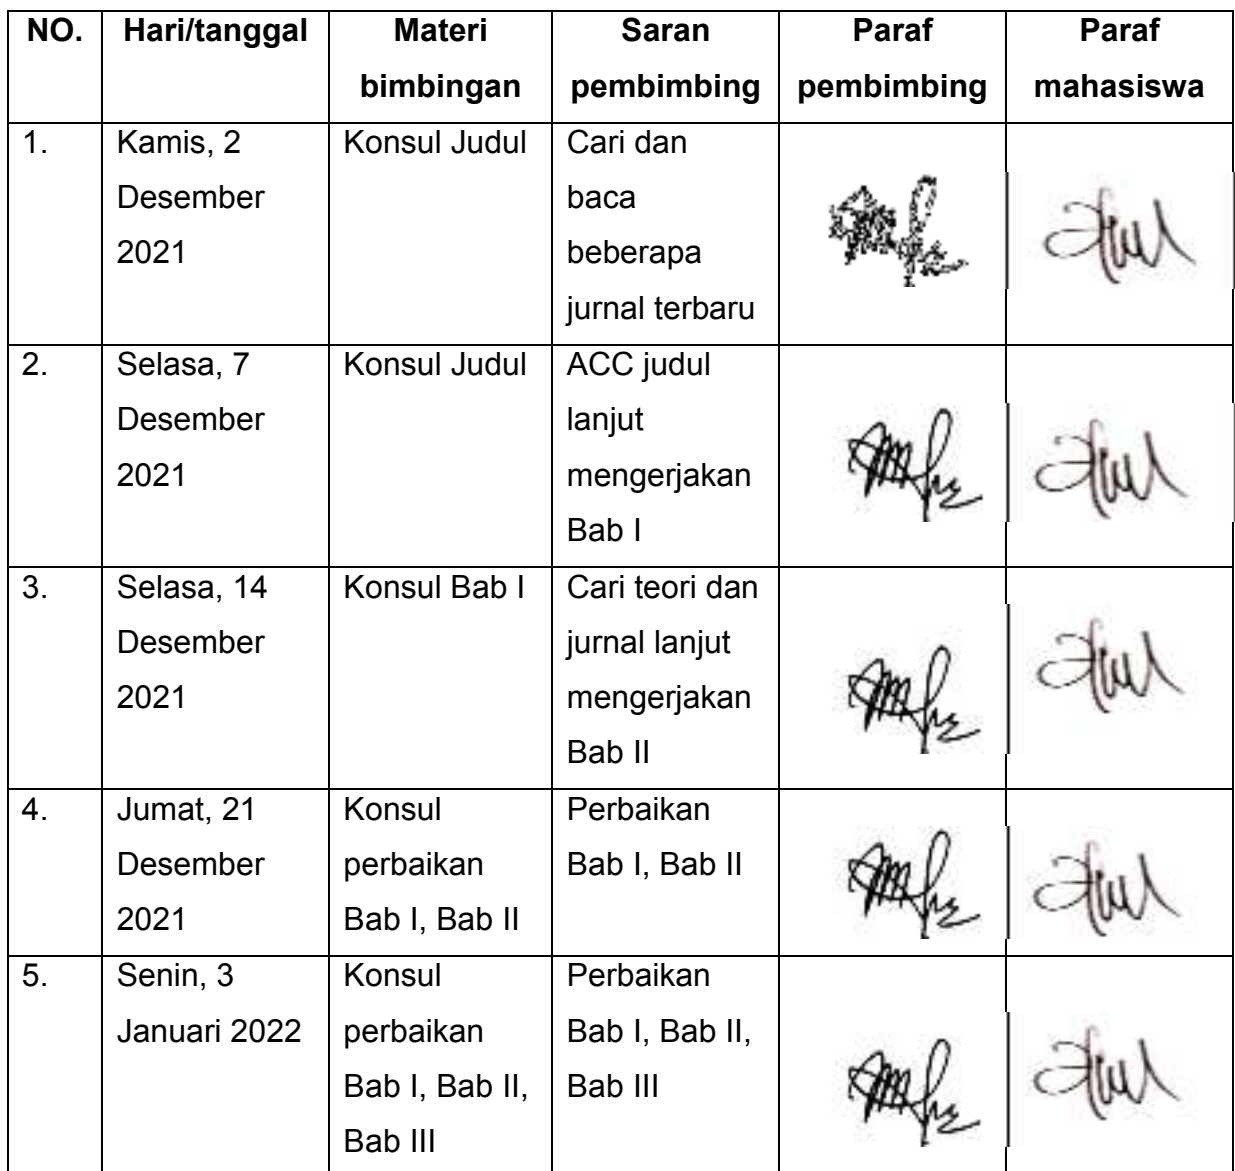 NO. Hari/tanggal Materi bimbingan Saran pembimbing Paraf pembimbing Paraf mahasiswa
1. Kamis, 2 Desember 2021 Konsul Judul Cari dan baca beberapa jurnal terbaru
2. Selasa, 7 Desember 2021 Konsul Judul ACC judul lanjut mengerjakan Bab I
3. Selasa, 14 Desember 2021 Konsul Bab I Cari teori dan jurnal lanjut mengerjakan Bab II
4. Jumat, 21 Desember 2021 Konsul perbaikan Bab I, Bab II Perbaikan Bab I, Bab II
5. Senin, 3 Januari 2022 Konsul perbaikan Bab I, Bab II, Bab III Perbaikan Bab I, Bab II, Bab III